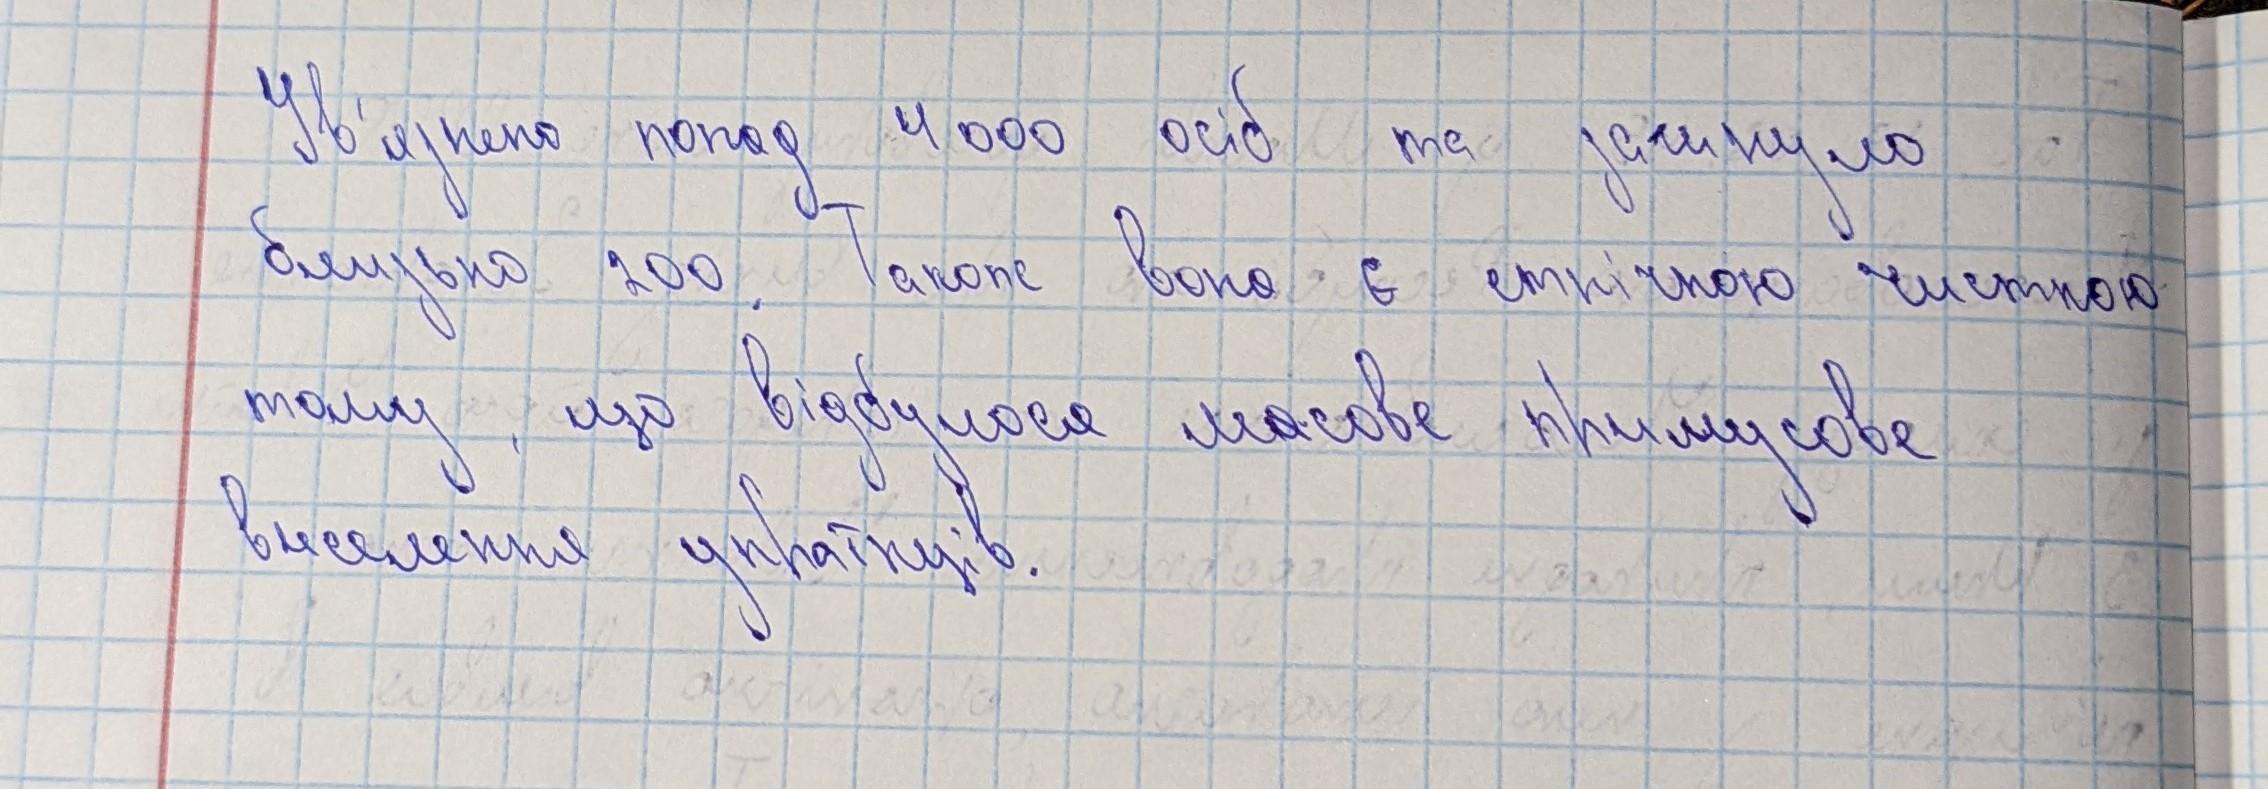 Ув'язнено понад 4000 осіб та загинуло
близько 200. Також вона є етнічною чисткою
тому, що відбулося масове примусове
виселення українців.